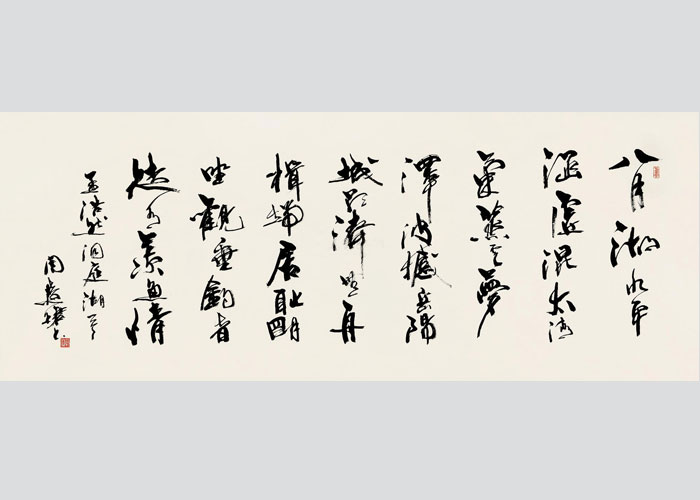 八月湖水平
涵虛混太清
氣蒸云夢
澤波撼岳陽
城欲濟無舟
楫端居耻明
坐觀垂釣者
徒有羨魚情
孟浩然洞庭湖
周慧珺